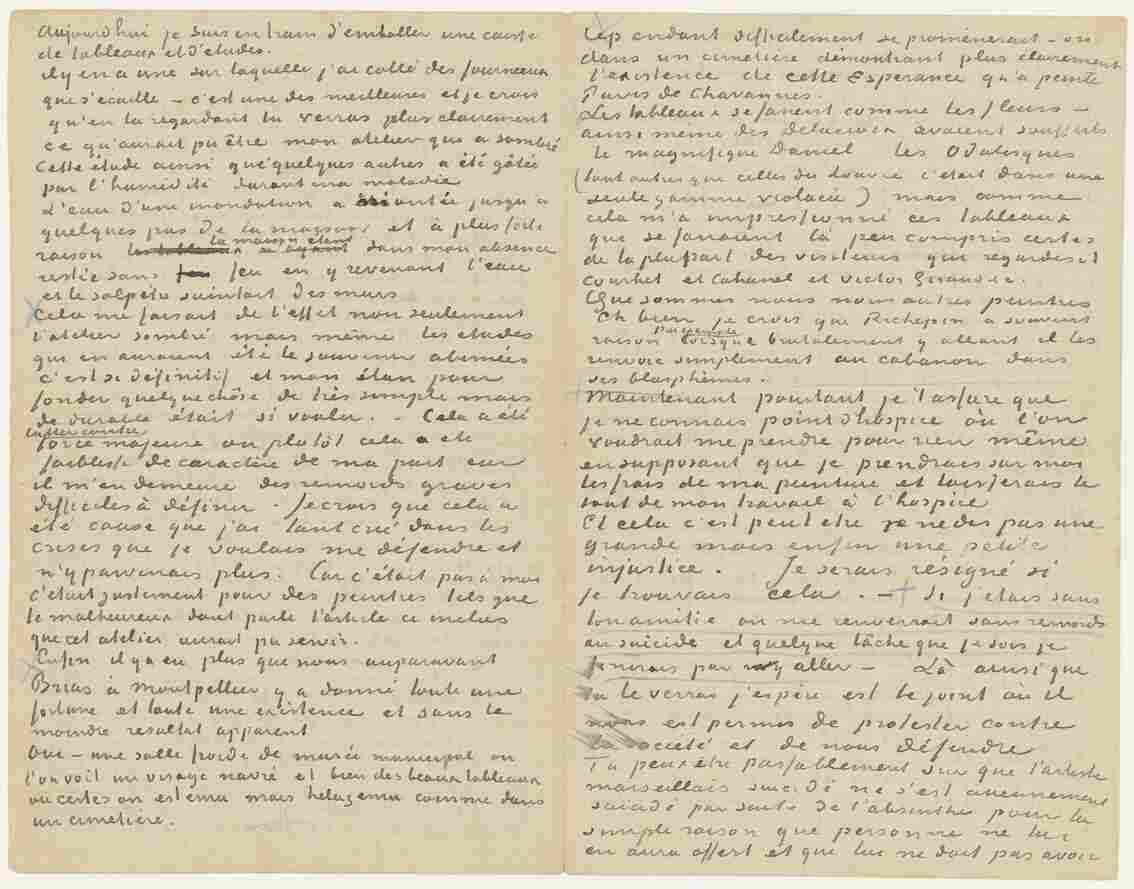 Aujourd'hui je suis en train d'emballer une caisse
de tableaux et d'etudes.
il y en a une sur laquelle j'ai collé des journeaux
qui s'ecaille – c'est une des meilleures et je crois
qu'en la regardant tu verras plus clairement
ce qu'aurait pu être mon atelier qui a sombré
Cette étude ainsi que quelques autres a été gâtée
par l'humidité durant ma maladie
L'eau d'une inondation a montée jusqu'à
quelques pas de la maison et à plus forte
raison la maison étant dans mon absence
restée sans feu en y revenant l'eau
et le salpêtre suintait des murs
Cela me faisait de l'effet non seulement
l'atelier sombré mais même les etudes
qui en auraient été le souvenir abimées
c'est si définitif et mon élan pour
fonder quelque chôse de très simple mais
de durable était si voulu. – Cela a été
lutter contre
force majeure ou plutôt cela a été
faiblesse de caractère de ma part car
il m'en demeure des remords graves
difficiles à définir. Je crois que cela a
été cause que j'ai tant crié dans les
crises que je voulais me défendre et
n'y parvenais plus. Car c'était pas à moi
c'était justement pour des peintres tels que
le malheureux dont parle l'article ci inclus
que cet atelier aurait pu servir.
Enfin il y a eu plus que nous auparavant
Brias à Montpellier y a donné toute une
fortune et toute une existence et sans le
moindre resultat apparent
Oui – une salle froide de musée municipal ou
l'on voit un visage navré et bien des beaux tableaux
ou certes on est ému mais helas ému comme dans
un cimetière.
Cependant difficilement se promènerait-on
dans un cimetière démontrant plus clairement
l'existence de cette Esperance qu'a peinte
Puvis de Chavannes.
Les tableaux se fanent comme les fleurs –
ainsi même des Delacroix avaient souffert
le magnifique Daniel les Odalisques
(tout autres que celles du Louvre c'était dans une
seule gamme violacée) mais comme
cela m'a impressionné ces tableaux
qui se fanaient là peu compris certes
de la plupart des visiteurs qui regardent
Courbet et Cabanel et Victor Giraud &c.
Que sommes nous nous autres peintres
Eh bien je crois que Richepin a souvent
raison par exemple lorsque brutalement y allant il les
renvoie simplement au cabanon dans
ses blasphèmes.
Maintenant pourtant je t'assure que
je ne connais point d'hospice où l'on
voudrait me prendre pour rien même
en supposant que je prendrais sur moi
les frais de ma peinture et laisserais le
tout de mon travail à l'hospice
Et cela c'est peut être je ne dis pas une
grande mais enfin une petite
injustice. Je serais résigné si
je trouvais cela. – Si j'etais sans
ton amitié on me renverrait sans remords
au suicide et quelque lâche que je sois je
finirais par y aller – Là ainsi que
tu le verras j'espère est le joint ou il
nous est permis de protester contre
la société et de nous défendre
Tu peux être passablement sur que l'artiste
marseillais suicidé ne s'est aucunement
suicidé par suite de l'absinthe pour la
simple raison que personne ne lui
en aura offert et que lui ne doit pas avoir